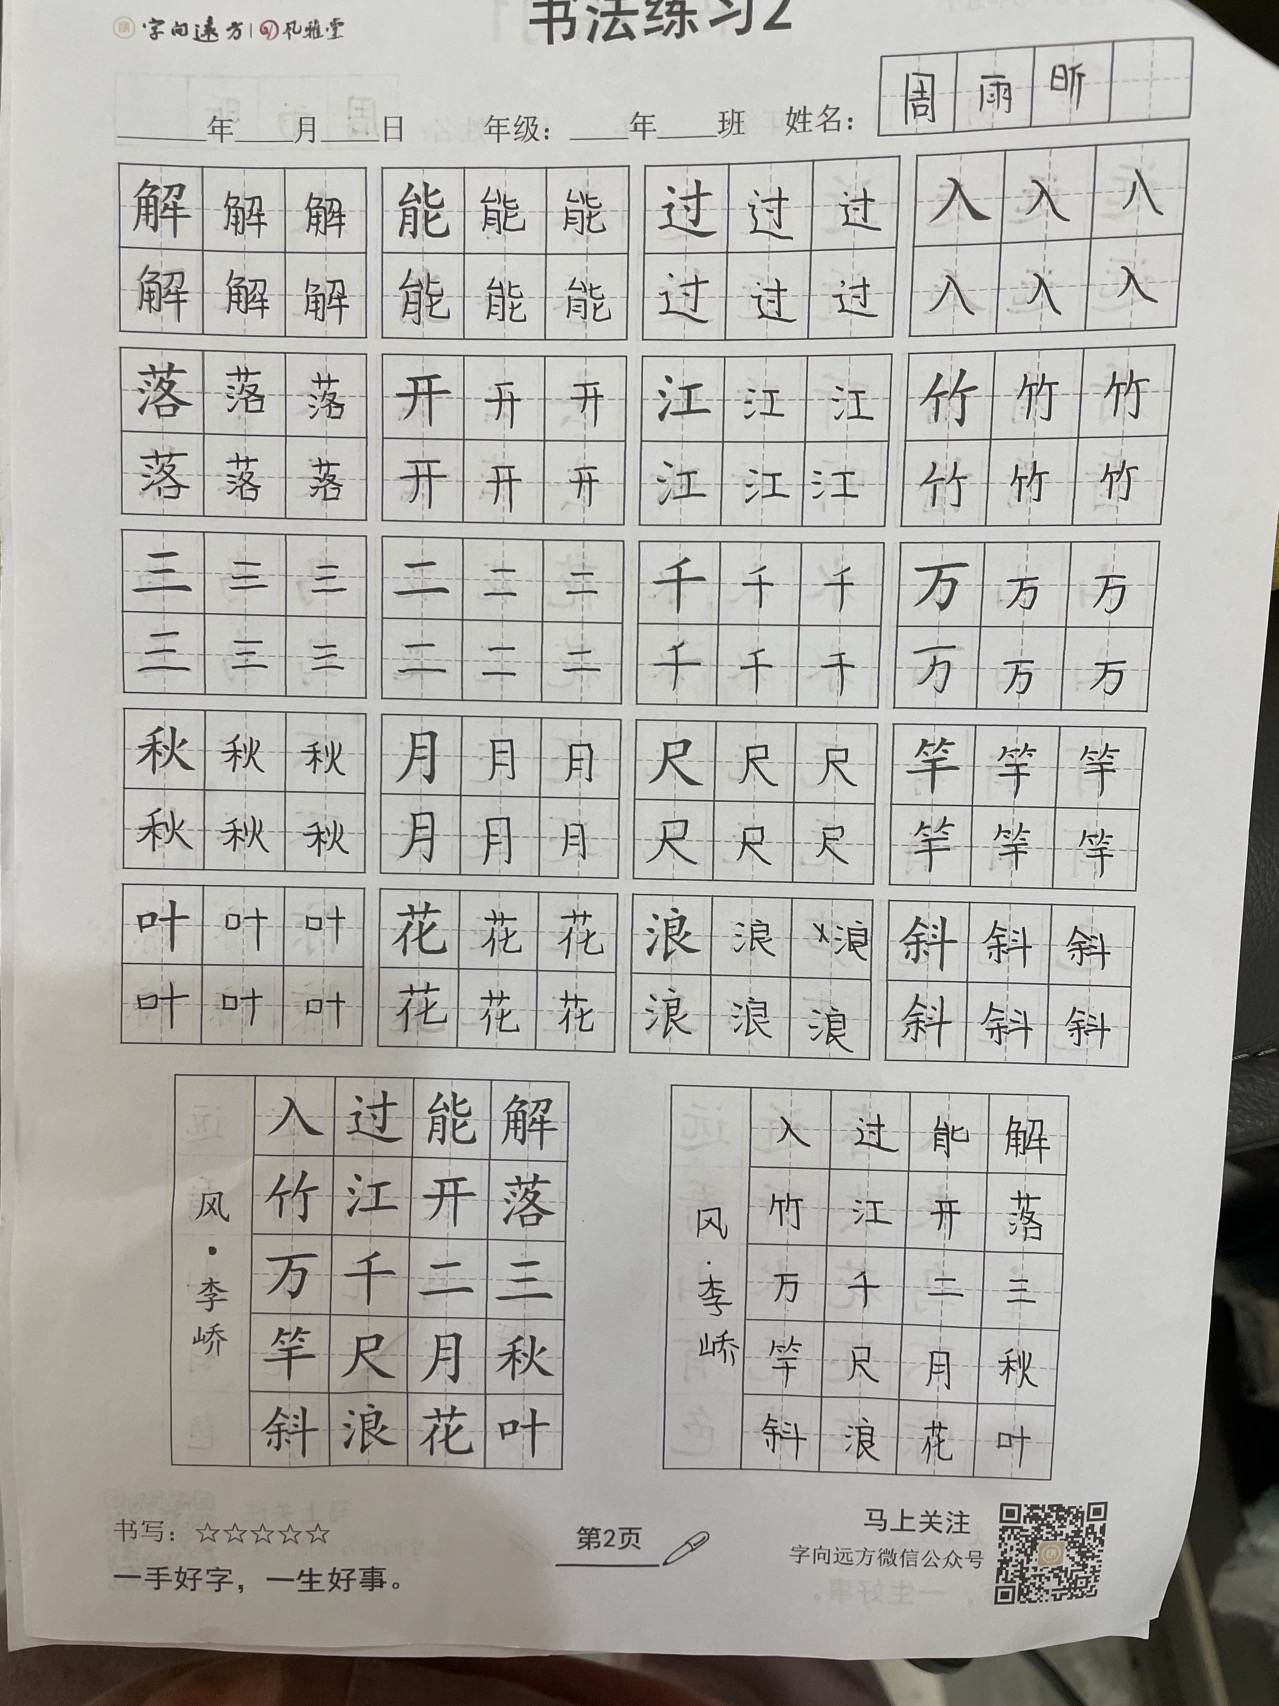 字向远方 | 风雅堂
书法练习2
周雨昕
____年____月____日 年级：____年____班 姓名：
解解解 能能能 过过过 入入八
解解解 能能能 过过过 入入入
落落落 开开开 江江江 竹竹竹
落落落 开开开 江江江 竹竹竹
三三三 二二二 千千千 万万万
三三三 二二二 千千千 万万万
秋秋秋 月月月 尺尺尺 竿竿竿
秋秋秋 月月月 尺尺尺 竿竿竿
叶叶叶 花花花 浪浪x浪 斜斜斜
叶叶叶 花花花 浪浪浪 斜斜斜
解落三秋叶
能开二月花
过江千尺浪
入竹万竿斜
风·李峤
解落三秋叶
能开二月花
过江千尺浪
入竹万竿斜
风·李峤
书写：☆☆☆☆☆
一手好字，一生好事。
第2页
马上关注
字向远方微信公众号